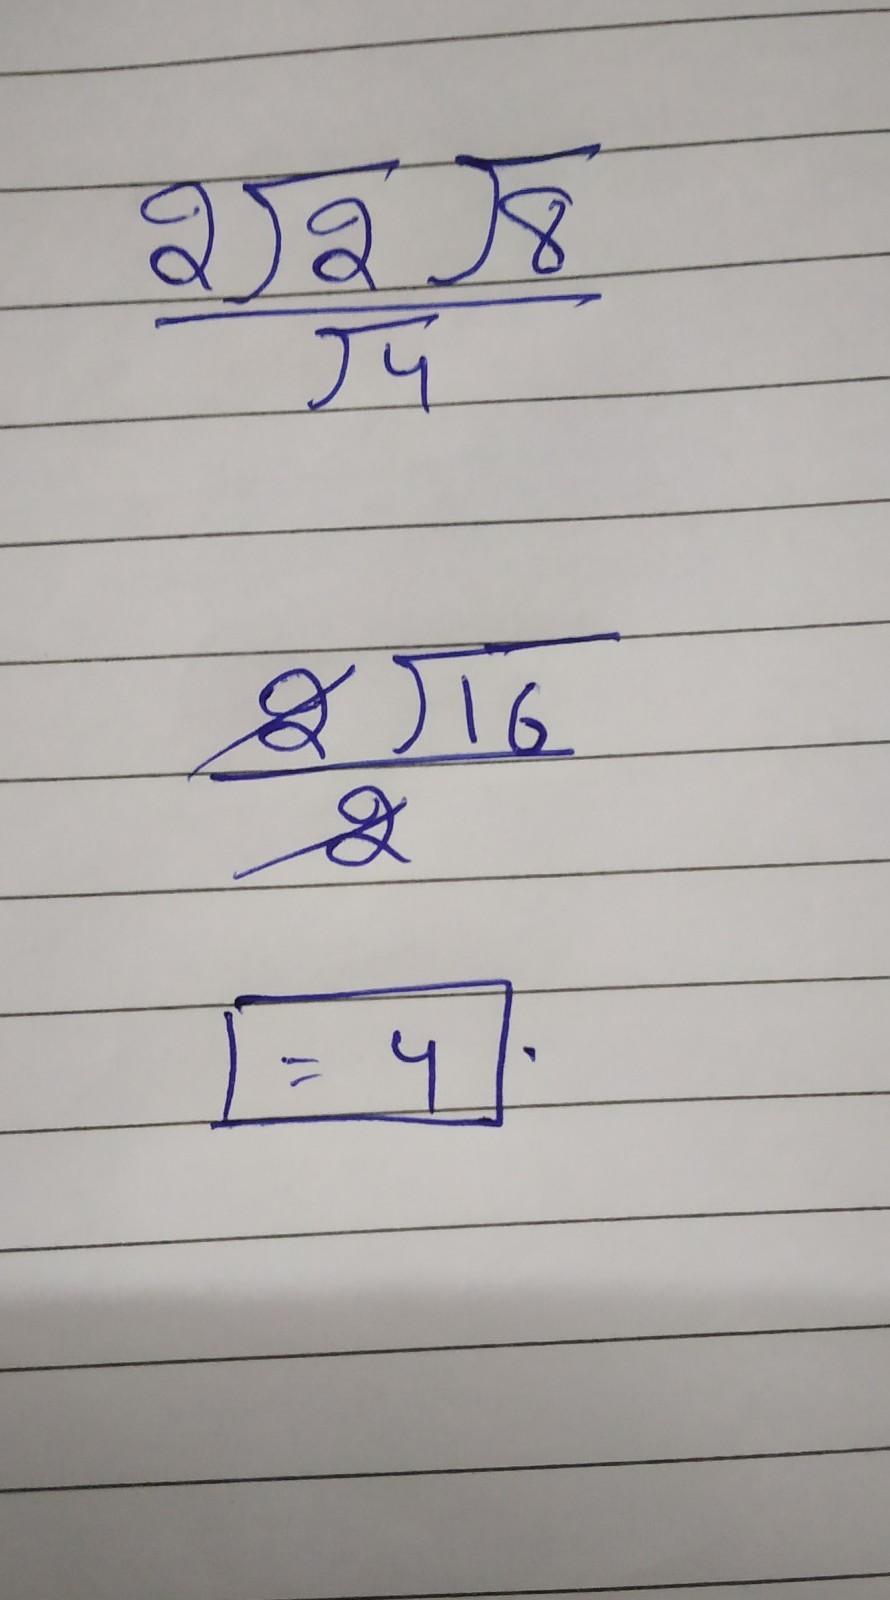 2√2 √8
√4
2√16
2
= 4.